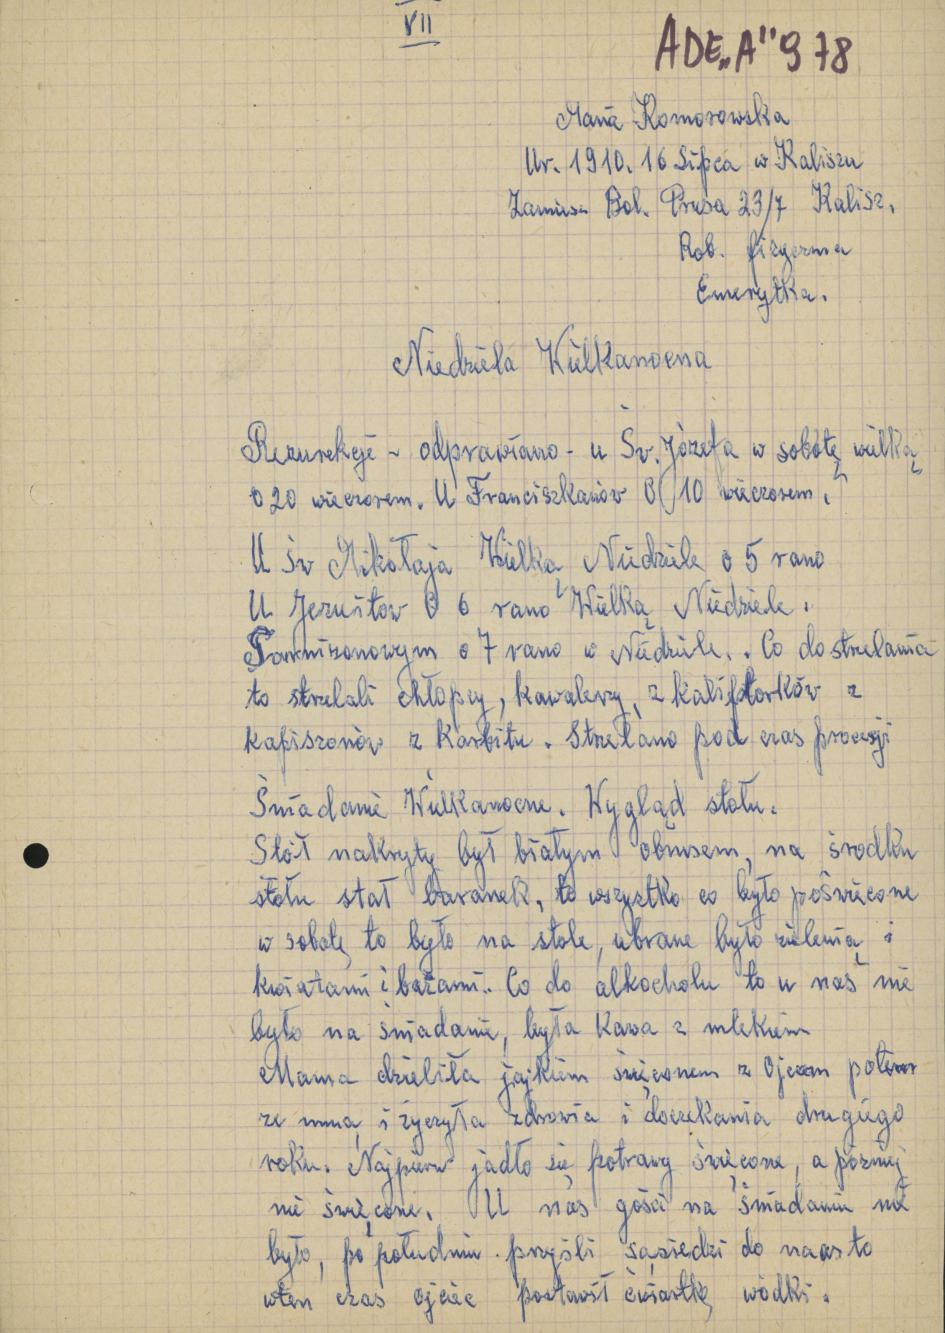 VII
ADE „A" 978
Maria Komorowska
Ur. 1910. 16 Lipca w Kaliszu
Zamiesz. Bol. Prusa 23/7 Kalisz.
Rob. fizyczna
Emerytka.
Niedziela Wielkanocna
Rezurekcje - odprawiano - u Św. Józefa w sobotę wielką
o 20 wieczorem. U Franciszkanów O 10 wieczorem.
U św Mikołaja Wielką Niedziele o 5 rano
U Jezuitow O 6 rano Wielką Niedziele.
Garnizonowym o 7 rano w Niedziele.. Co do strzelania
to strzelali chłopcy, kawalerzy, z kaliflorków z
kapiszonów z Karbitu. Strzelano pod czas procesji
Śniadanie Wielkanocne. Wygląd stołu.
Stół nakryty był białym obrusem, na środku
stołu stał baranek, to wszystko co było poświęcone
w sobotę to było na stole, ubrane było zielenią i
kwiatami i baziami.. Co do alkocholu to u nas nie
było na śniadanie, była Kawa z mlekiem
Mama dzieliła jajkiem święconem z Ojcem potem
ze mną i życzyła zdrowia i doczekania drugiego
roku. Najpierw jadło się potrawy święcone, a pózniej
nie święcone. U nas gości na śniadaniu nie
było, po południu przyśli sąsiedzi do nas to
wten czas ojciec postawił ćwiartkę wódki.